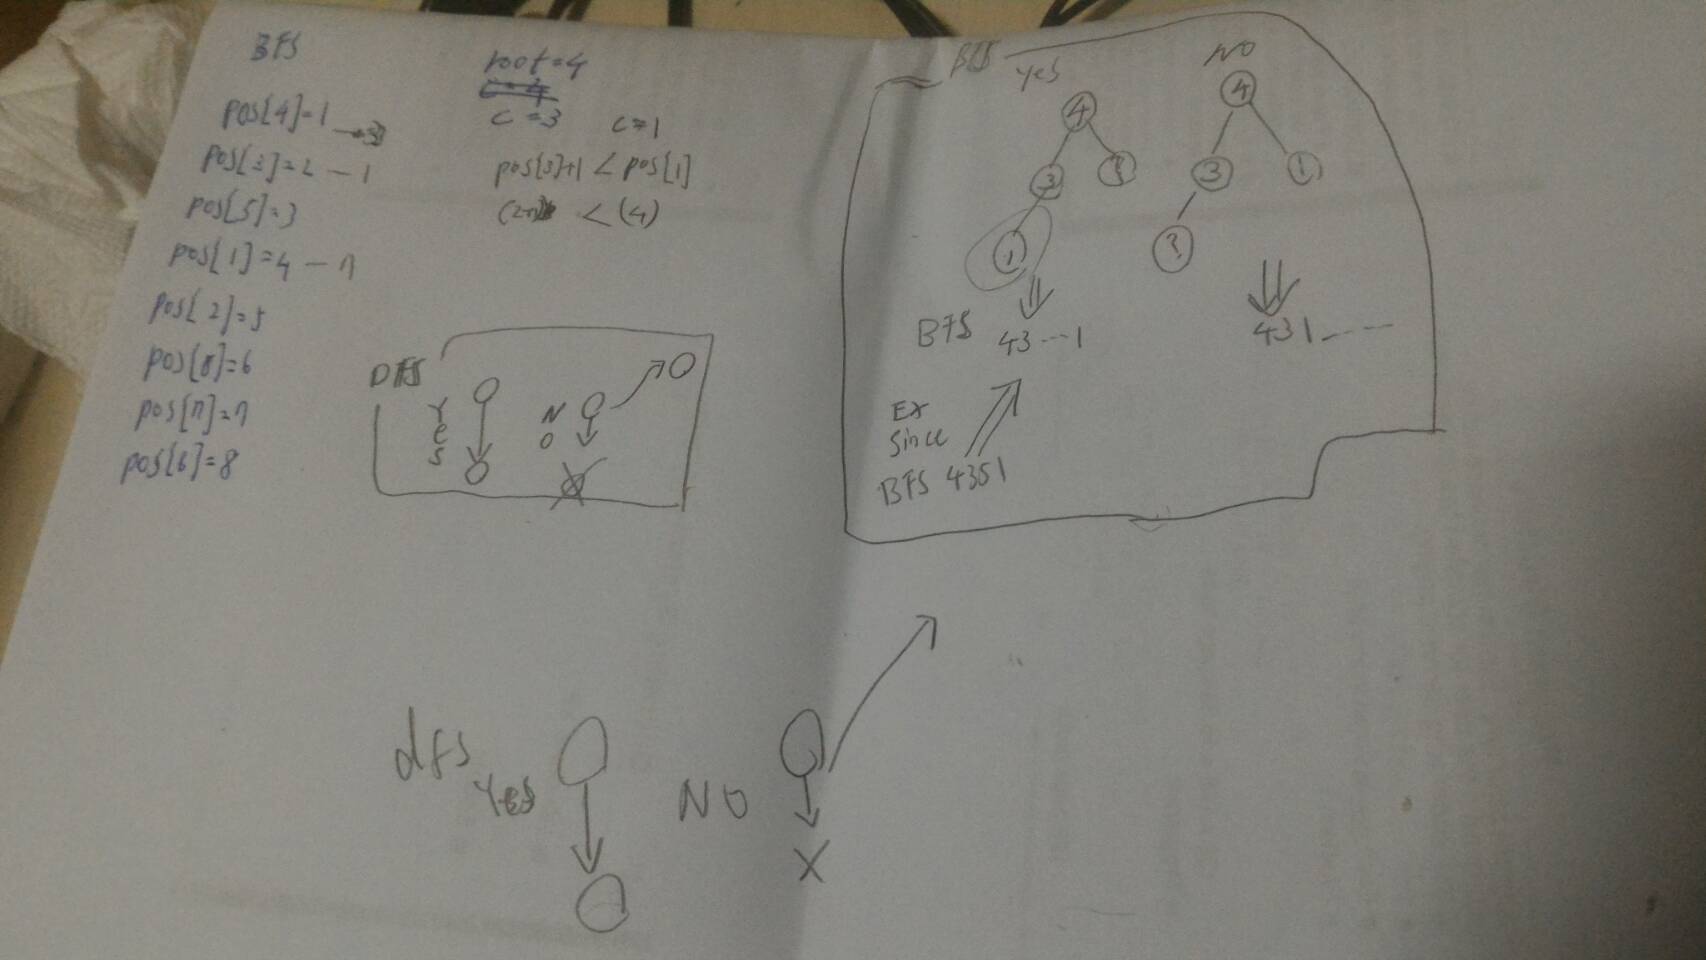 BFS
pos[4]=1
pos[3]=2 - 1
pos[5]=3
pos[1]=4 - 7
pos[2]=5
pos[8]=6
pos[7]=7
pos[6]=8
root=4
c=3 c=1
pos[3]+1 < pos[1]
< (4)
DFS
Yes
NO
BFS
Yes
NO
4
3
1
4
3 1
BFS 43---1
431----
Ex
Since
BFS 4351
dfs
Yes
NO